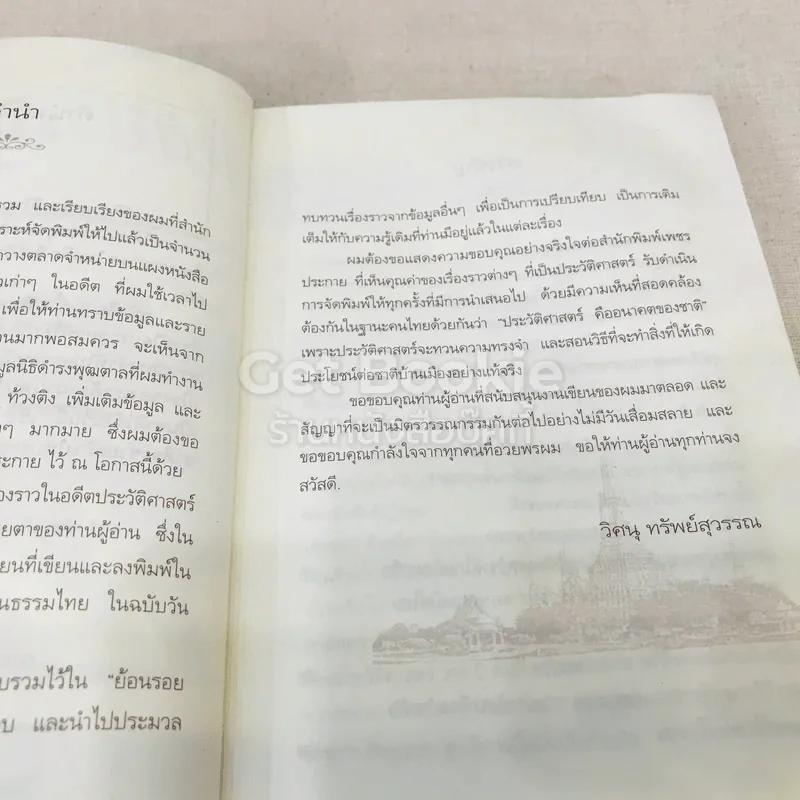 คำนำ
รวม และเรียบเรียงของผมที่สำนัก
ราะห์จัดพิมพ์ให้ไปแล้วเป็นจำนวน
วางตลาดจำหน่ายบนแผงหนังสือ
เก่าๆ ในอดีต ที่ผมใช้เวลาไป
เพื่อให้ท่านทราบข้อมูลและราย
นมากพอสมควร จะเห็นจาก
มูลนิธิดำรงพุฒตาลที่ผมทำงาน
ท้วงติง เพิ่มเติมข้อมูล และ
ๆ มากมาย ซึ่งผมต้องขอ
ะกาย ไว้ ณ โอกาสนี้ด้วย
องราวในอดีตประวัติศาสตร์
ยตาของท่านผู้อ่าน ซึ่งใน
ยนที่เขียนและลงพิมพ์ใน
นธรรมไทย ในฉบับวัน
บรวมไว้ใน "ย้อนรอย
บ และนำไปประมวล
ทบทวนเรื่องราวจากข้อมูลอื่นๆ เพื่อเป็นการเปรียบเทียบ เป็นการเติม
เต็มให้กับความรู้เดิมที่ท่านมีอยู่แล้วในแต่ละเรื่อง
ผมต้องขอแสดงความขอบคุณอย่างจริงใจต่อสำนักพิมพ์เพชร
ประกาย ที่เห็นคุณค่าของเรื่องราวต่างๆ ที่เป็นประวัติศาสตร์ รับดำเนิน
การจัดพิมพ์ให้ทุกครั้งที่มีการนำเสนอไป ด้วยมีความเห็นที่สอดคล้อง
ต้องกันในฐานะคนไทยด้วยกันว่า "ประวัติศาสตร์ คืออนาคตของชาติ"
เพราะประวัติศาสตร์จะทวนความทรงจำ และสอนวิธีที่จะทำสิ่งที่ให้เกิด
ประโยชน์ต่อชาติบ้านเมืองอย่างแท้จริง
ขอขอบคุณท่านผู้อ่านที่สนับสนุนงานเขียนของผมมาตลอด และ
สัญญาที่จะเป็นมิตรวรรณกรรมกันต่อไปอย่างไม่มีวันเสื่อมสลาย และ
ขอขอบคุณกำลังใจจากทุกคนที่อวยพรผม ขอให้ท่านผู้อ่านทุกท่านจง
สวัสดี.
วิศนุ ทรัพย์สุวรรณ
Get Bookie
ร้านหนังสือบุ๊คกี้